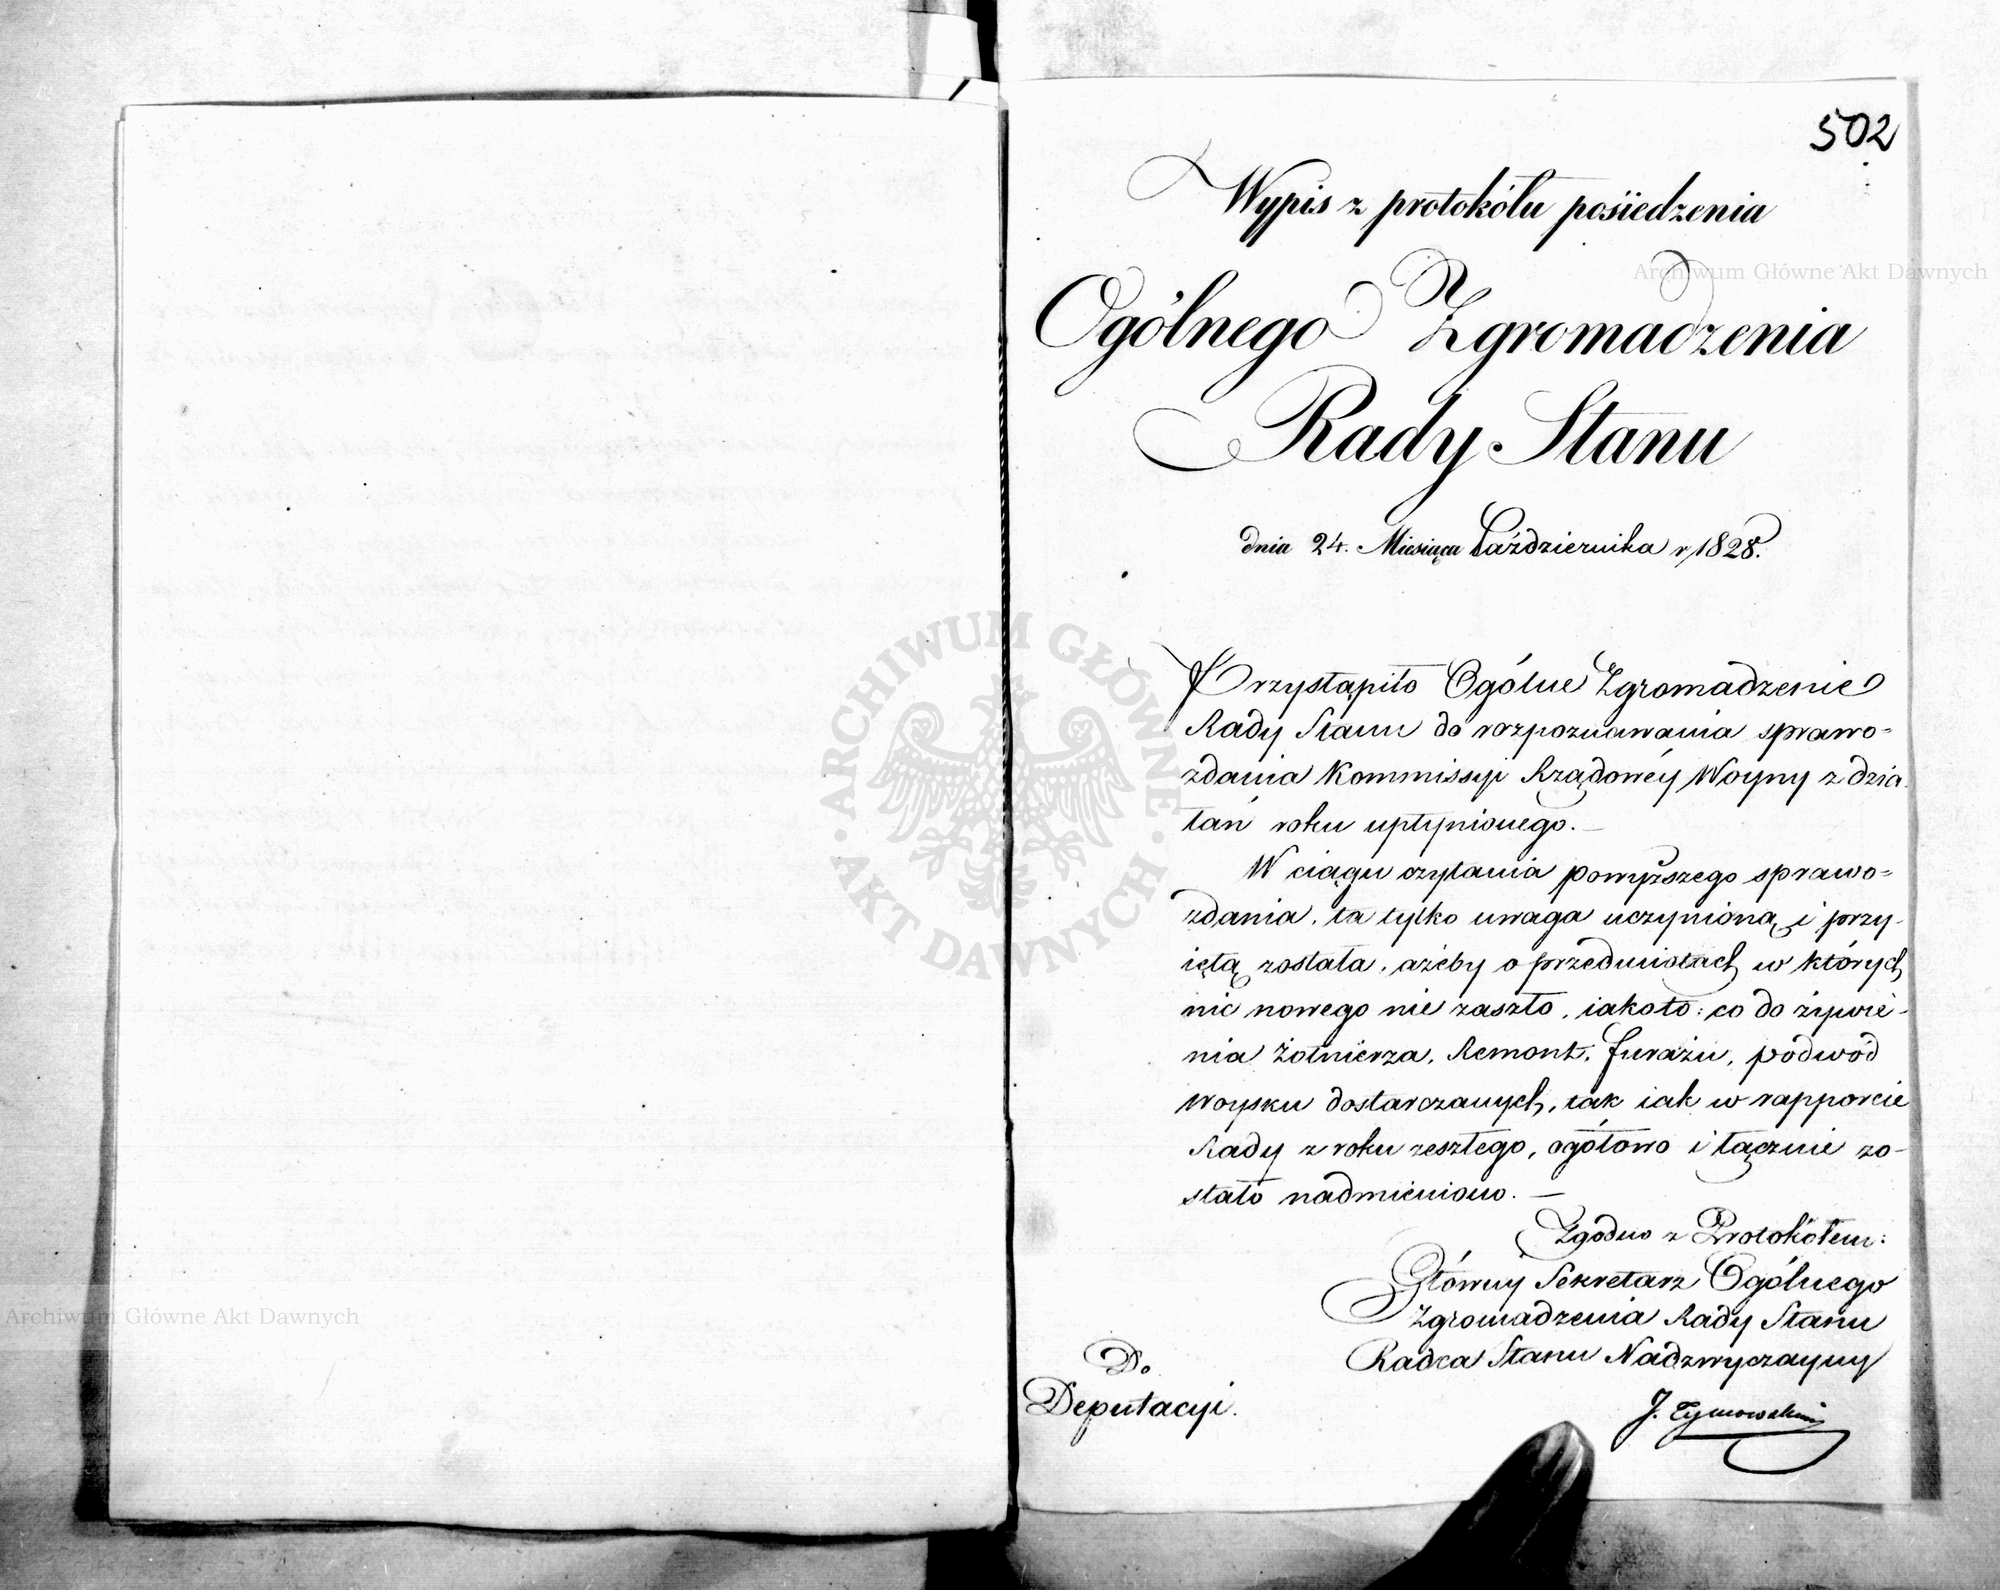 502
Wypis z protokółu posiedzenia
Ogólnego Zgromadzenia
Rady Stanu
dnia 24. Miesiąca Października r 1828.
Przystąpiło Ogólne Zgromadzenie
Rady Stanu do rozpoznawania sprawo=
zdania Kommissyi Rządowéy Woyny z dzia-
łań roku upłynionego. —
W ciągu czytania powyższego sprawo=
zdania, ta tylko uwaga uczynioną i przy-
iętą została, ażeby o przedmiotach w których
nic nowego nie zaszło, iakoto: co do żywie-
nia żołnierza, Remont, furażu, podwód
woysku dostarczanych, tak iak w rapporcie
Rady z roku zeszłego, ogółowo i łącznie zo-
stało nadmieniono. —
Zgodno z Protokółem:
Główny Sekretarz Ogólnego
Zgromadzenia Rady Stanu
Radca Stanu Nadzwyczayny
J. Tymowski
Do
Deputacyi.
Archiwum Główne Akt Dawnych
ARCHIWUM GŁÓWNE · AKT DAWNYCH ·
Archiwum Główne Akt Dawnych